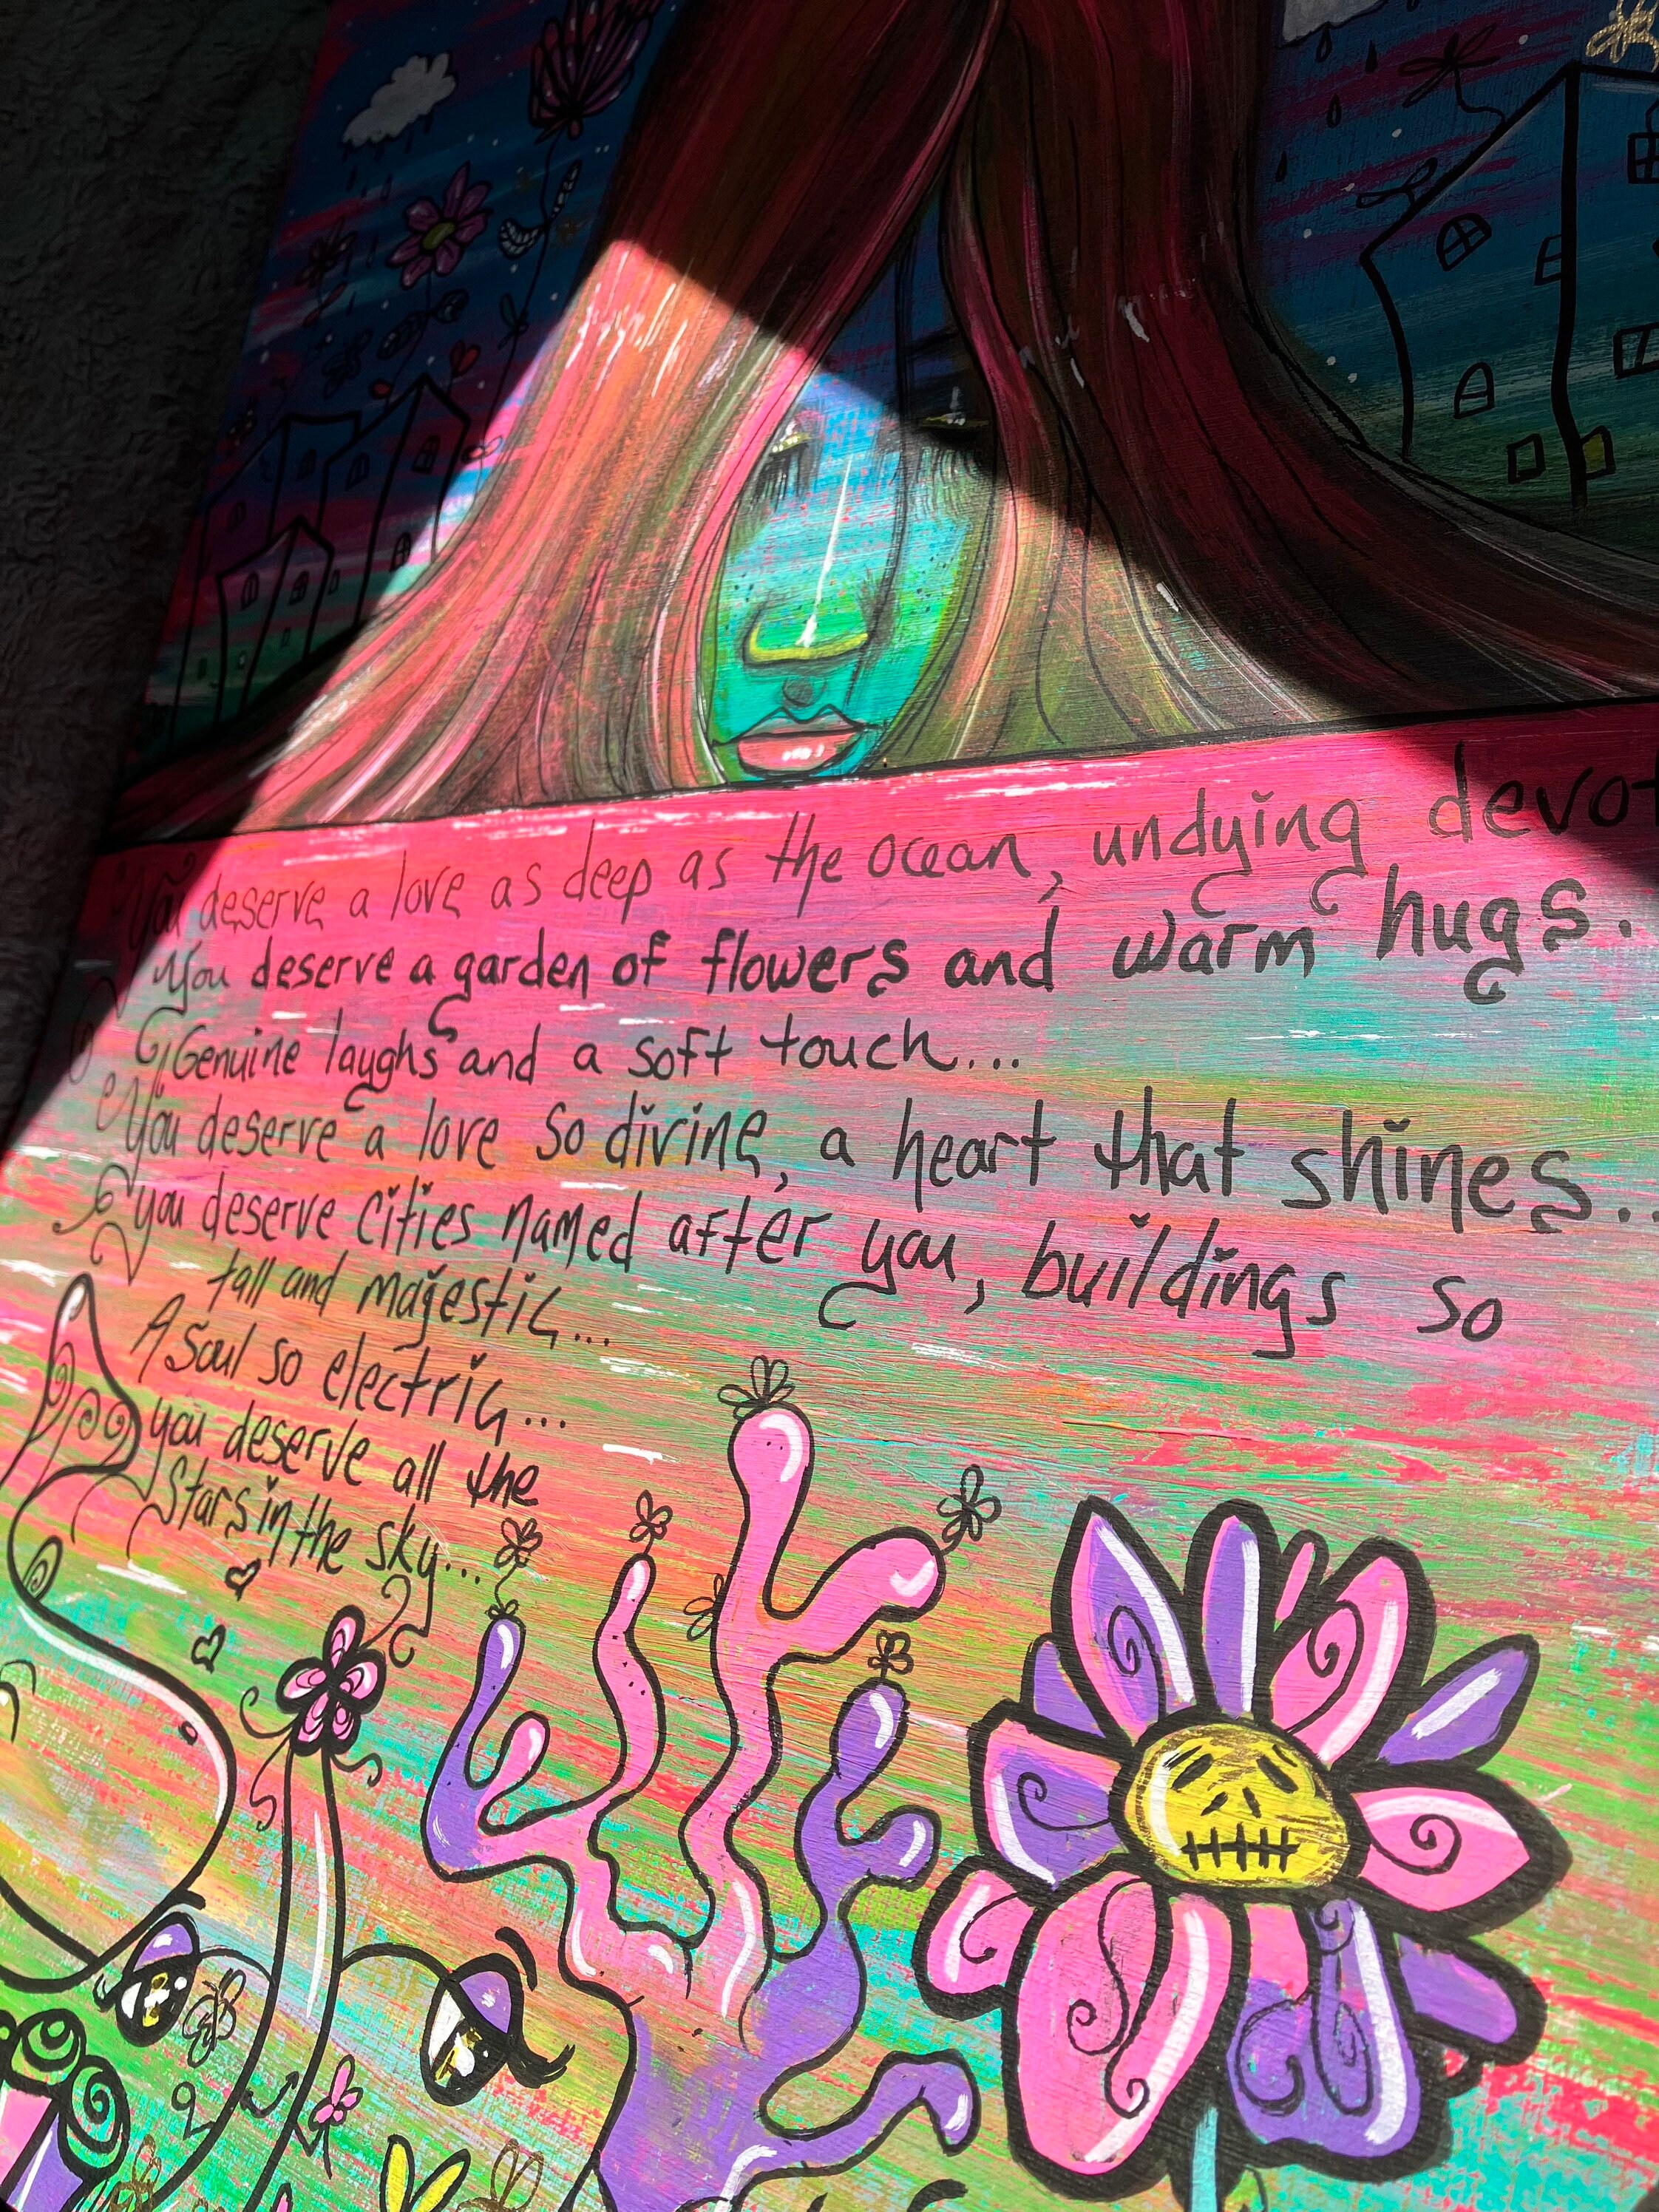 You deserve a love as deep as the ocean, undying devot
You deserve a garden of flowers and warm hugs.
Genuine laughs and a soft touch...
You deserve a love so divine, a heart that shines...
you deserve cities named after you, buildings so
tall and majestic...
A soul so electric...
you deserve all the
stars in the sky...